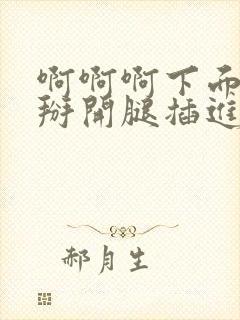 啊啊啊下面
掰開腿插進
郝月生